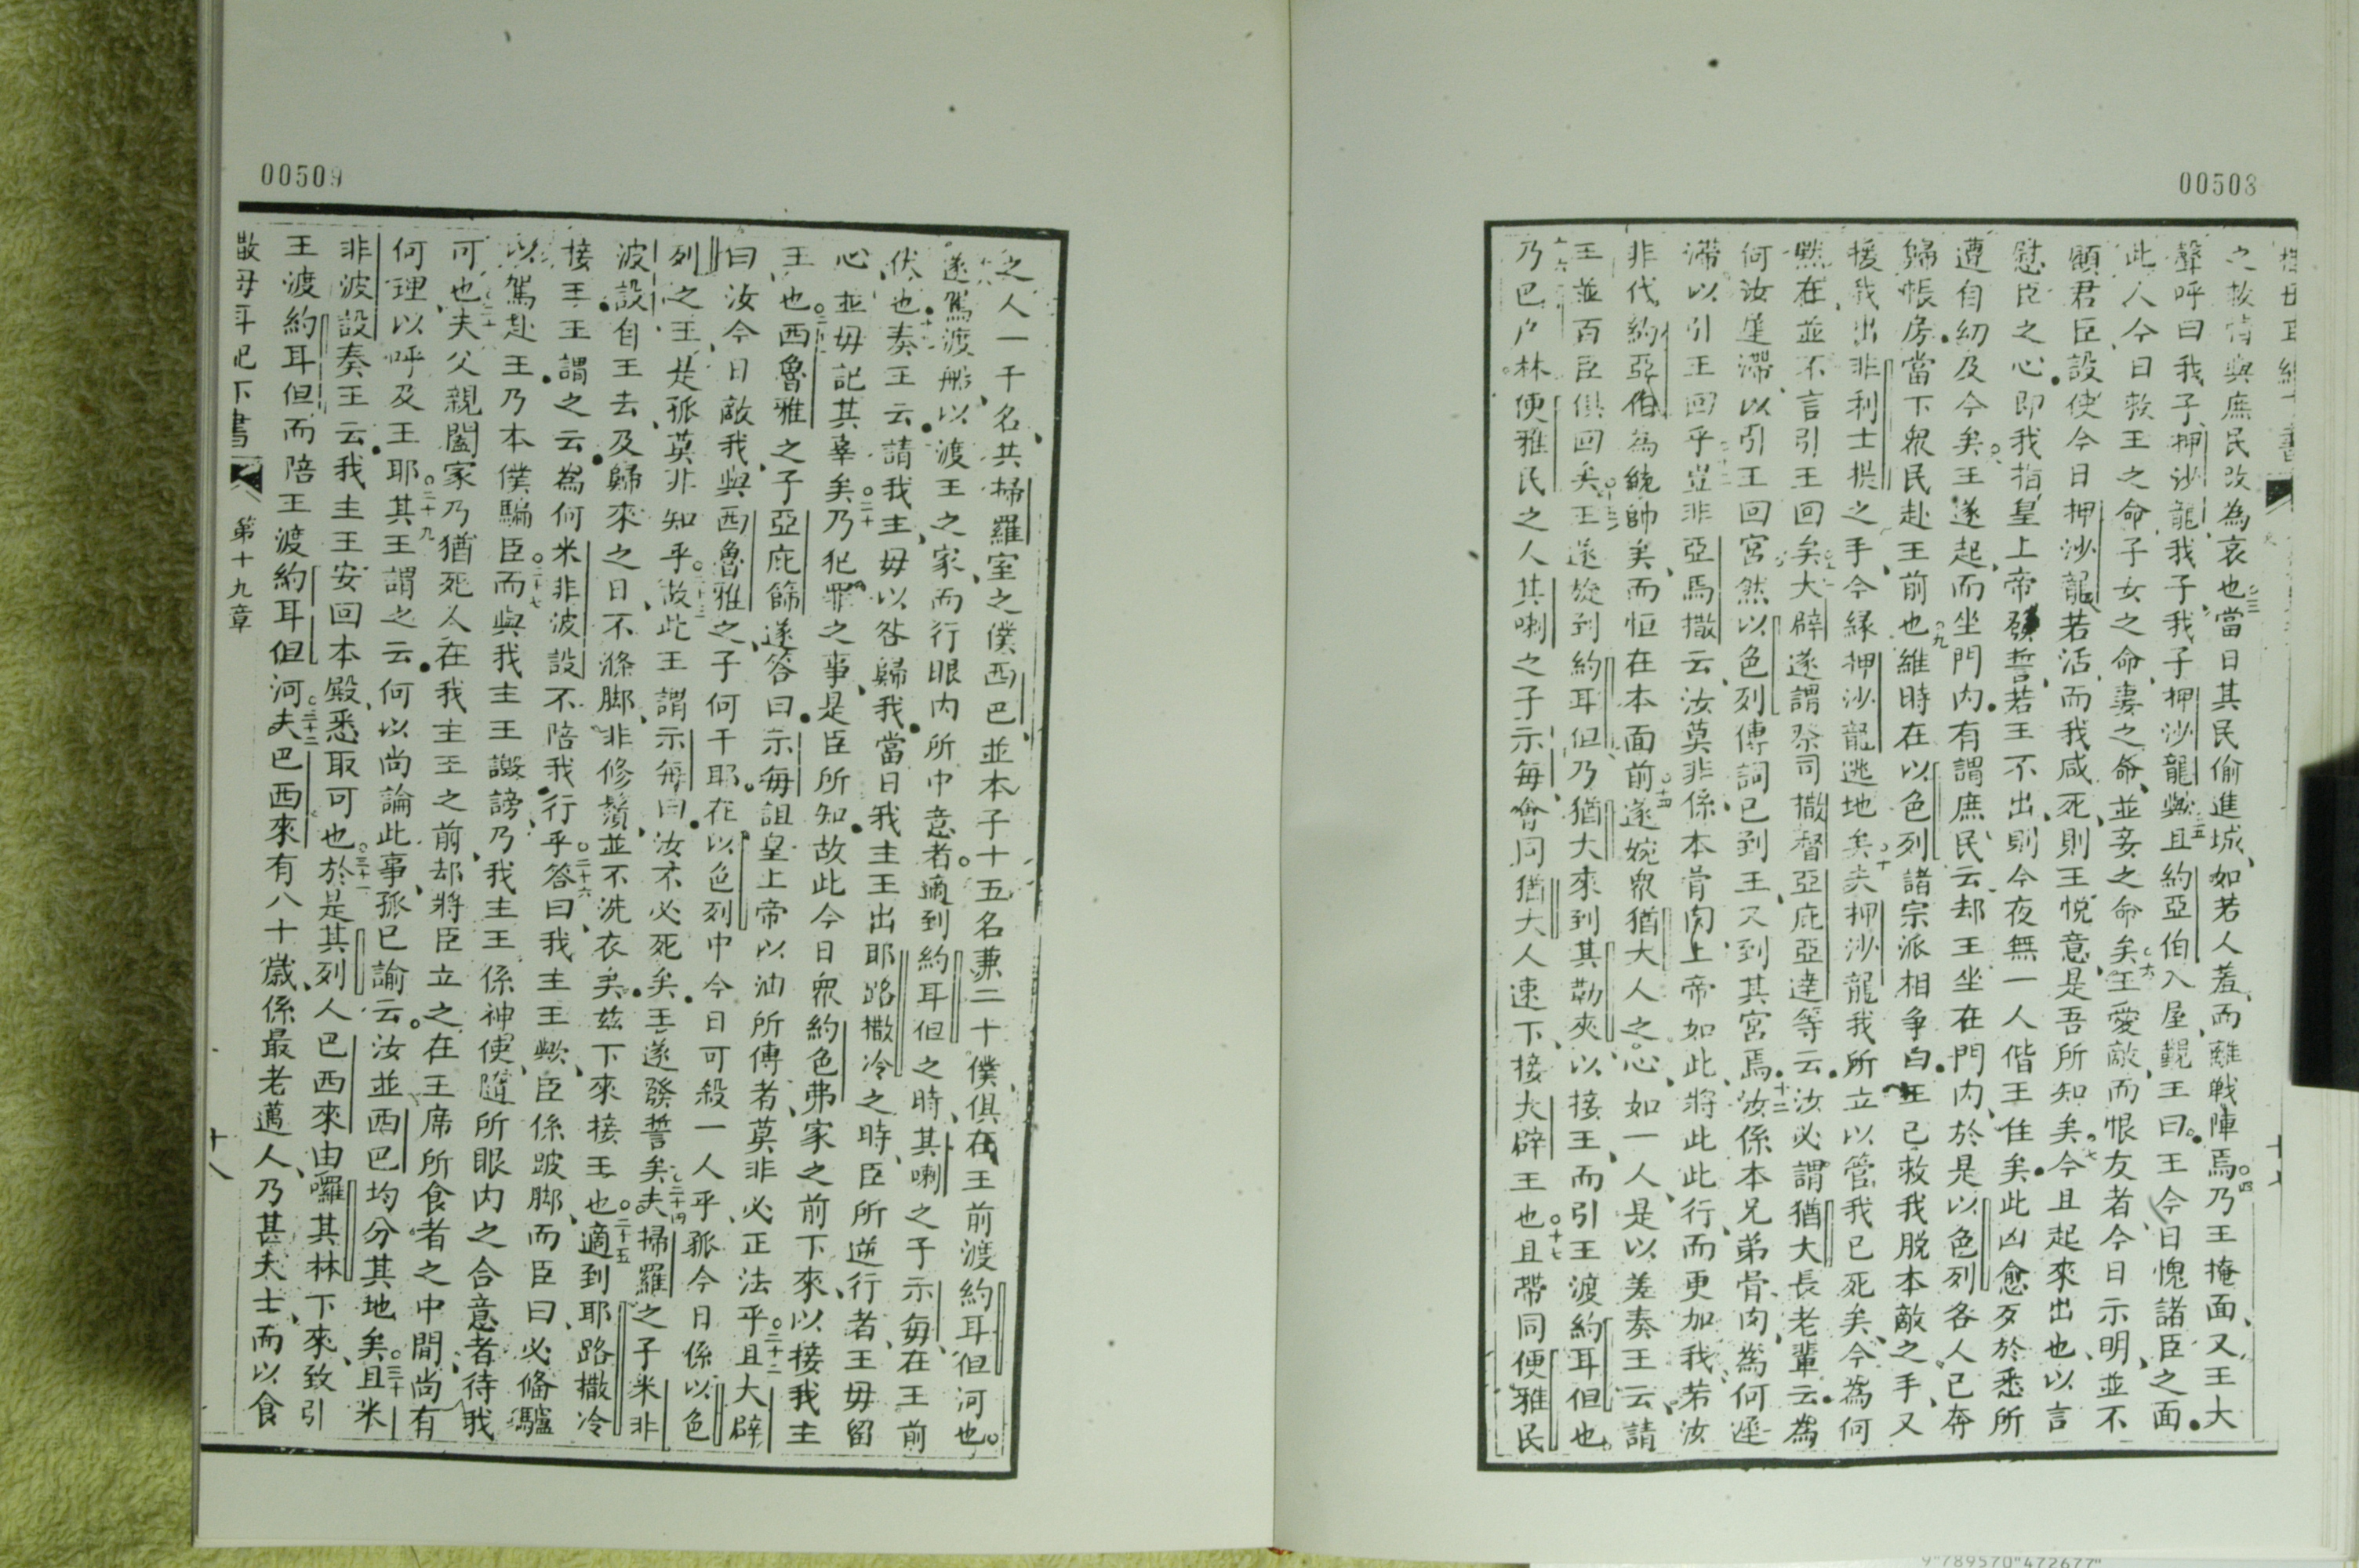 00508
之故情與庶民改為哀也三當日其民偷進城如若人羞而離戰陣焉四乃王掩面又王大
聲呼曰我子押沙龍我子我子押沙龍歟五且約亞伯入屋覲王曰王今日愧諸臣之面
此人今日救王之命子女之命妻之命並妾之命矣六王愛敵而恨友者今日示明並不
顧君臣設使今日押沙龍若活而我咸死則王悅意是吾所知矣七今且起來出也以言
慰臣之心即我指皇上帝發誓若王不出則今夜無一人偕王住矣此凶愈歹於悉所
遭自幼及今矣八王遂起而坐門內有謂庶民云却王坐在門內於是以色列各人已奔
歸帳房當下眾民赴王前也九維時在以色列諸宗派相爭白王已救我脫本敵之手又
援我出非利士提之手今緣押沙龍逃地矣十夫押沙龍我所立以管我已死矣今為何
默在並不言引王回矣大辟遂謂祭司撒督亞庇亞達等云汝必謂猶大長老輩云為
何汝遲滯以引王回宮然以色列傳詞已到王又到其宮焉十二汝係本兄弟骨肉為何遲
滯以引王回乎豈非亞馬撒云汝莫非係本骨肉上帝如此將此此行而更加我若汝
非代約亞伯為統帥矣而恒在本面前十四遂婉眾猶大人之心如一人是以差奏王云請
王並百臣俱回矣王遂旋到約耳但乃猶大來到其勒夾以接王而引王渡約耳但也
乃巴戶林便雅民之人其喇之子示每會同猶大人速下接大辟王也十七且帶同便雅民
十七
00509
之人一千名共掃羅室之僕西巴並本子十五名兼二十僕俱在王前渡約耳但河也
遂駕渡船以渡王之家而行眼內所中意者適到約耳但之時其喇之子示每在王前
伏也奏王云請我主毋以咎歸我當日我主王出耶路撒冷之時臣所逆行者王毋留
心並毋記其辜矣二十乃犯罪之事是臣所知故此今日眾約色弗家之前下來以接我主
王也西魯雅之子亞庇篩遂答曰示每詛皇上帝以油所傅者莫非必正法乎二十二且大辟
曰汝今日敵我與西魯雅之子何干耶在以色列中今日可殺一人乎孤今日係以色
列之王是孤莫非知乎二十三故此王謂示每曰汝不必死矣王遂發誓矣二十四夫掃羅之子米非
波設自王去及歸來之日不滌脚非修鬚並不洗衣矣茲下來接王也二十五適到耶路撒冷
接王王謂之云為何米非波設不陪我行乎二十六答曰我主王歟臣係跛脚而臣曰必俻驢
以駕赴王乃本僕騙臣二十七而與我主王譭謗乃我主王係神使隨所眼內之合意者待我
可也夫父親闔家乃猶死人在我主王之前却將臣立之在王席所食者之中間尚有
何理以呼及王耶二十九其王謂之云何以尚論此事孤已諭云汝並西巴均分其地矣三十且米
非波設奏王云我主王安回本殿悉取可也三十一於是其列人巴西來由囉其林下來致引
王渡約耳但而陪王渡約耳但河三十二夫巴西來有八十歲係最老邁人乃甚夫士而以食
撒母耳記下書 第十九章 十八
9"789570"472677"